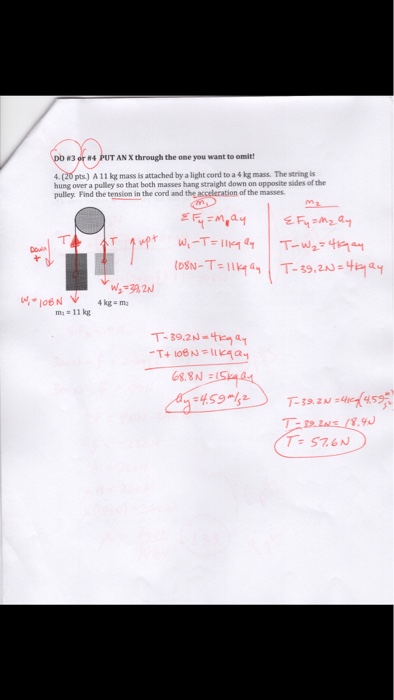 DO #3 or #4 PUT AN X through the one you want to omit!
4. (20 pts.) A 11 kg mass is attached by a light cord to a 4 kg mass. The string is
hung over a pulley so that both masses hang straight down on opposite sides of the
pulley. Find the tension in the cord and the acceleration of the masses.
m₁
m₂
ΣFy = m₁ay
ΣFy = m₂ay
Down
+
T
T
up +
W₁-T = 11kg ay
T-W₂ = 4kg ay
108N-T = 11kg ay
T-39.2N = 4kg ay
W₂ = 39.2N
W₁ = 108N
4 kg = m₂
m₁ = 11 kg
T-39.2N = 4kg ay
-T+108N = 11kg ay
68.8N = 15kg ay
ay = 4.59 m/s²
T-39.2N = 4kg(4.59 m/s²)
T-39.2N = 18.4N
T = 57.6N